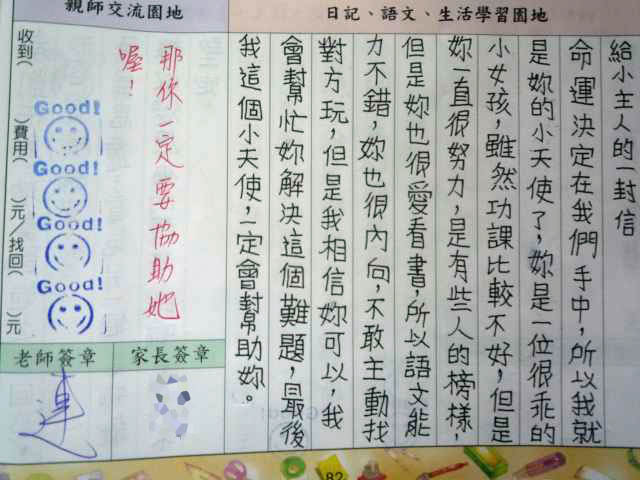 日記、語文、生活學習園地
給小主人的一封信
命運決定在我們手中，所以我就
是妳的小天使了，妳是一位很乖的
小女孩，雖然功課比較不好，但是
妳一直很努力，是有些人的榜樣，
但是妳也很愛看書，所以語文能
力不錯，妳也很內向，不敢主動找
對方玩，但是我相信妳可以，我
會幫忙妳解決這個難題，最後
我這個小天使，一定會幫助妳。
親師交流園地
那你一定要協助她
喔！
Good!
Good!
Good!
Good!
收到（　）費用（　）元／找回（　）元
家長簽章
老師簽章
82